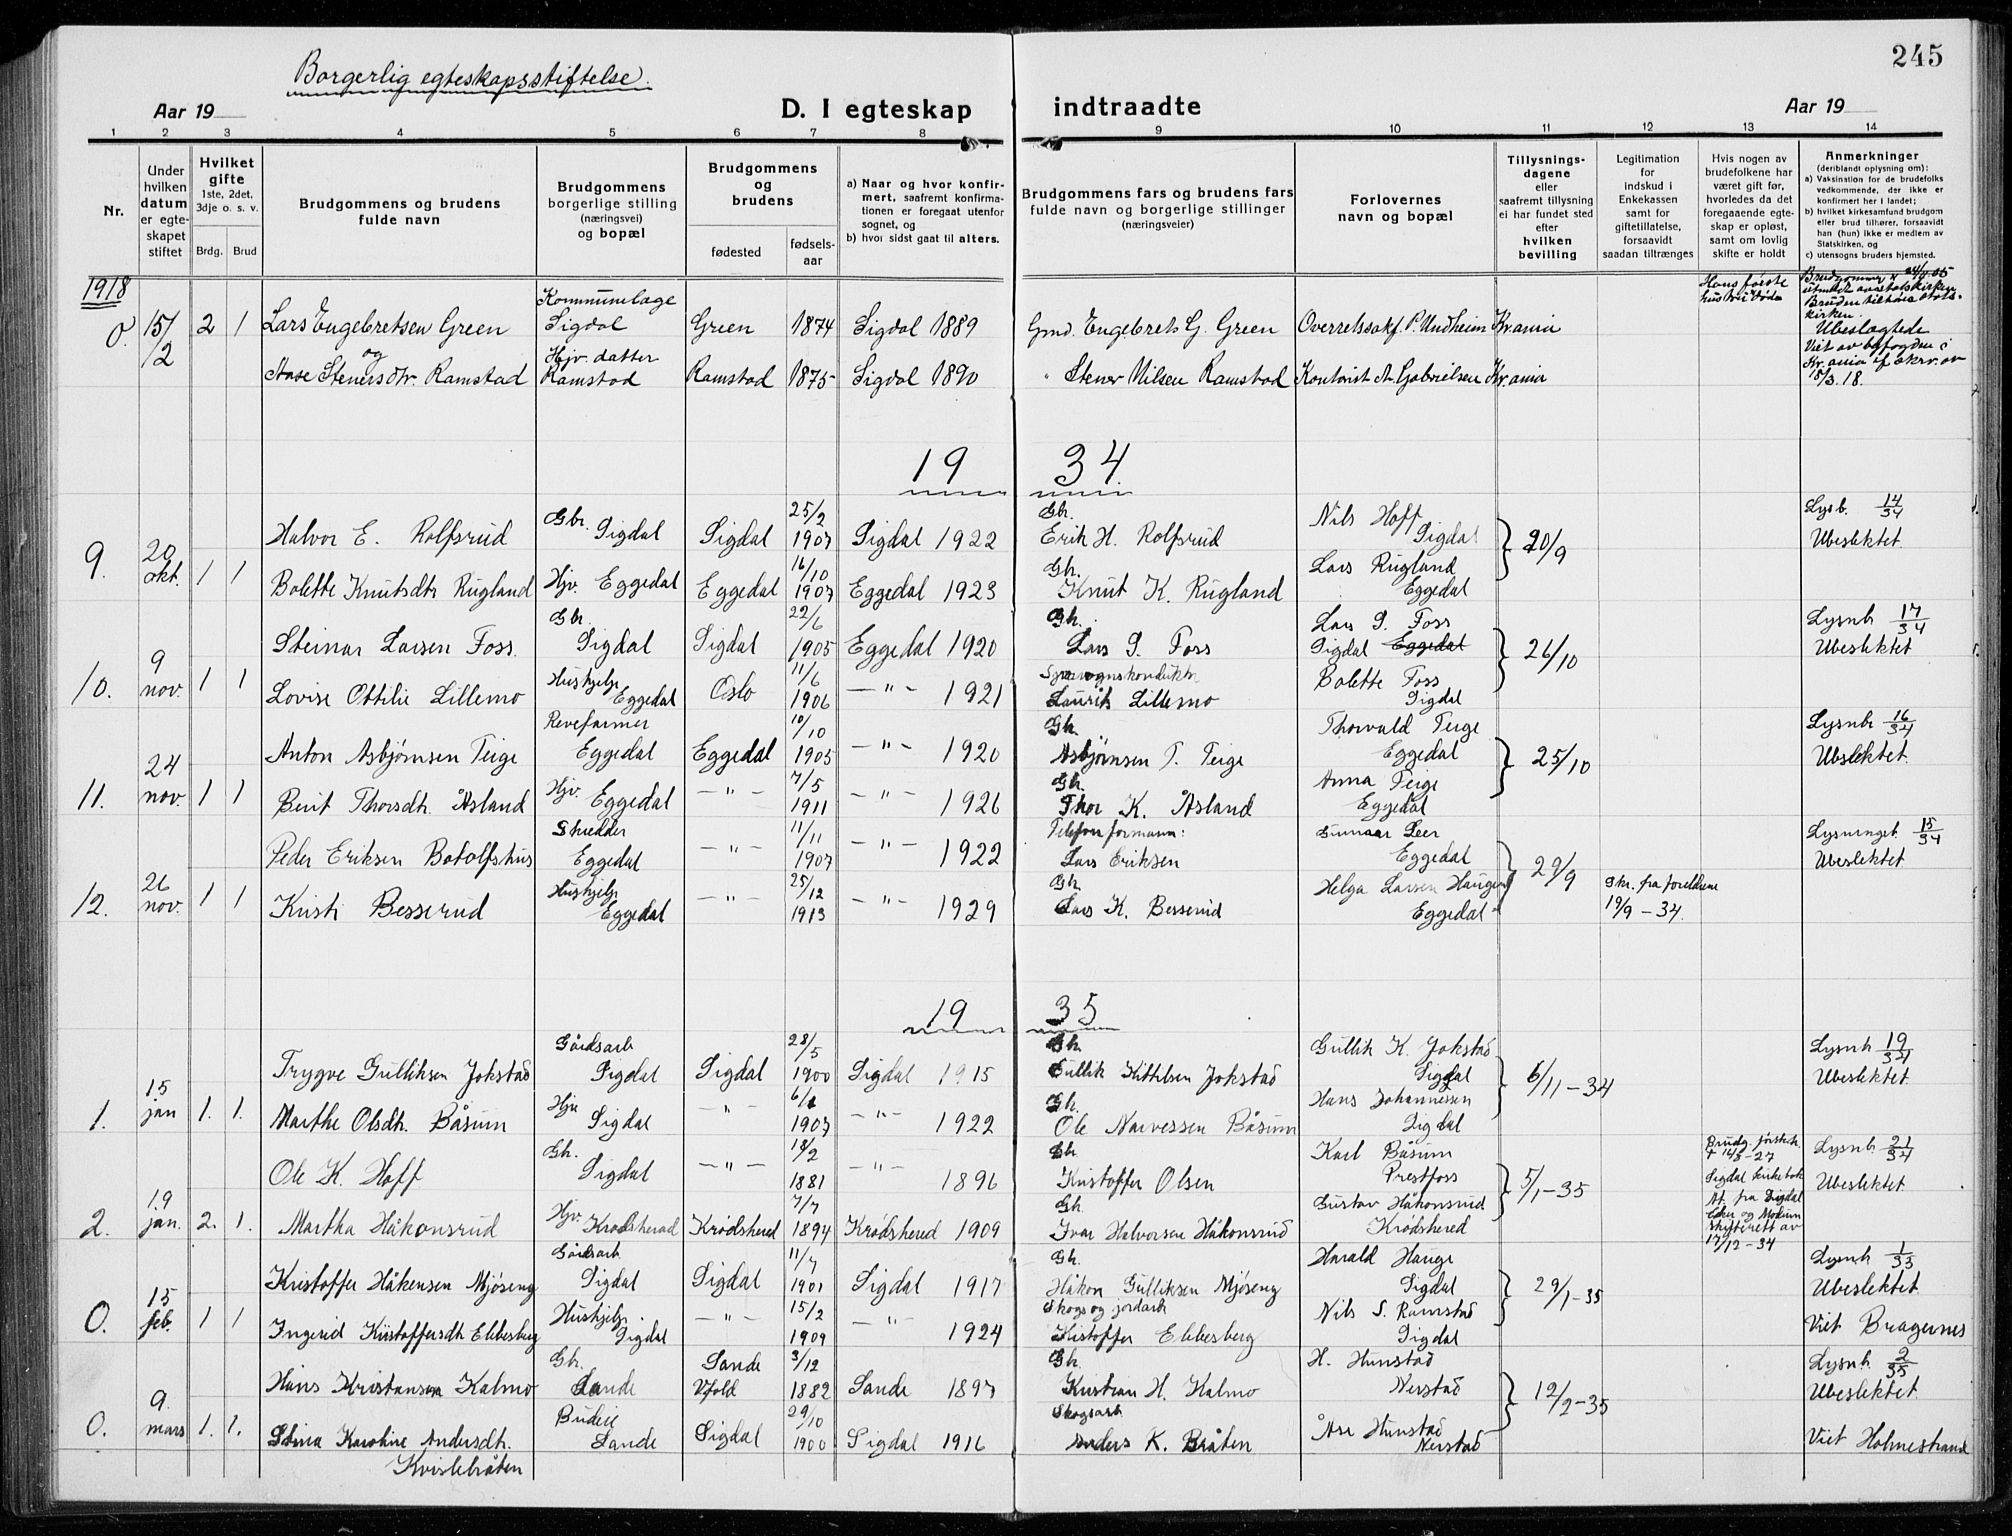 245
Borgerlig egteskapsstiftelse.
Aar 19
D. I egteskap indtraadte
Aar 19
1 2 3 4 5 6 7 8 9 10 11 12 13 14
Nr.
Under hvilken datum er egte-skapet stiftet
Hvilket gifte
1ste, 2det, 3dje o. s. v.
Brdg. Brud
Brudgommens og brudens fulde navn
Brudgommens borgerlige stilling (næringsvei) og bopæl
Brudgommens og brudens
fødested
fødsels-aar
a) Naar og hvor konfir-mert, saafremt konfirma-tionen er foregaat utenfor sognet, og
b) hvor sidst gaat til alters.
Brudgommens fars og brudens fars fulde navn og borgerlige stillinger (næringsveier)
Forlovernes navn og bopæl
Tillysnings-dagene eller saafremt tillysning ei har fundet sted efter hvilken bevilling
Legitimation for indskud i Enkekassen samt for giftetillatelse, forsaavidt saadan tiltrænges
Hvis nogen av brudefolkene har været gift før, hvorledes da det foregaaende egte-skap er opløst, samt om lovlig skifte er holdt
Anmerkninger
(deriblandt oplysning om):
a) Vaksination for de brudefolks vedkommende, der ikke er konfirmert her i landet;
b) hvilket kirkesamfund brudgom eller brud tilhører, forsaavidt han (hun) ikke er medlem av Statskirken, og
c) utensogns bruders hjemsted.
1918
0. 15/2 2 1 Lars Engebretsen Green Sigdal Green 1874 Sigdal 1889 Gmd. Engebret G. Green Overretssakf. P. Undheim Kr.ania
Hans første hustru døde
og
Aase Stenersdtr. Ramstad Hjv. datter Ramstad Ramstad 1875 Sigdal 1890 " Stener Nilsen Ramstad Kontorist A. Gabrielsen Kr.ania
Ubeslægtede
Viet av byfogden i
Kr.ania if. skrv. av
15/3. 18.
19 34
9. 20 okt. 1 1
Halvor E. Rolfsrud Gbr. Sigdal Sigdal 25/2 1907 Sigdal 1922 Gbr. Erik H. Rolfsrud Nils Hoff Sigdal 20/9 Lysb. 14/34 Ubeslektet.
Bolette Knutsdtr Rugland Hjv. Eggedal Eggedal 16/10 1907 Eggedal 1923 Gb. Knut K. Rugland Lars Rugland Eggedal
10. 9 nov. 1 1
Steinar Larsen Foss Gbr. Sigdal Sigdal 22/6 1905 Eggedal 1920 Gb. Lars S. Foss Lars S. Foss Sigdal Eggedal 26/10 Lysnb 17/34 Ubeslektet
Lovise Ottilie Lillemo Hushjelp Eggedal Oslo 11/6 1906 — " — 1921 Laurits Lillemo Bolette Foss Sigdal
11. 24 nov. 1 1
Anton Asbjørnsen Teige Revefarmer Eggedal Eggedal 10/10 1905 — " — 1920 Gb. Asbjørnsen T. Teige Thorvald Teige Eggedal 25/10 Lysnb 16/34 Ubslektet.
Berit Thorsdtr. Åsland Hjv. Eggedal — " — 7/5 1911 — " — 1926 Gb. Thor K. Åsland Anna Teige Eggedal
12. 26 nov. 1 1
Peder Eriksen Botolfshus Skredder Eggedal — " — 11/11 1907 — " — 1922 Telefonformann: Lars Eriksen Gunnar Leer Eggedal 29/9 Lysninget. 15/34 Ubeslektet
Kristi Besserud Hushjelp Eggedal — " — 25/12 1913 — " — 1929 Gb. Lars K. Besserud Helga Larsen Haugen Eggedal Skr. fra foreldrene 19/9 – 34.
19 35
1. 15 jan 1. 1.
Trygve Gulliksen Jokstad Gårdsarb Sigdal Sigdal 28/5 1900 Sigdal 1915 Gb. Gullik Kittilsen Jokstad Gullik K. Jokstad Sigdal 6/11 – 34 Lysnb 19/34 Ubeslektet.
Marthe Olsdtr. Båsum Hjv Sigdal — " — 1907 — " — 1922 Gb. Ole Narvessen Båsum Hans Johannessen Sigdal
2. 19 jan. 2. 1.
Ole K. Hoff Gb. Sigdal — " — 1881 — " — 1896 Gb. Kristoffer Olsen Karl Båsum Prestfoss 5/1 – 35 Lysnb. 21/34 Ubeslektet.
Sigdal kirkebok
At. fra Sigdal
Eiker og Modum
skifterett av
17/12 – 34
Martha Håkonsrud Hjv. Krødsherad Krødsherad 7/7 1894 Krødsherad 1909 Gb. Ivar Halvorsen Håkonsrud Gustav Håkonsrud Krødshered
0. 15 feb. 1 1
Kristoffer Håkensen Mjøseng Gårdsarb Sigdal Sigdal 11/7 1901 Sigdal 1917 Gb. Håkon Gulliksen Mjøseng Harald Hauge Sigdal 29/1 – 35 Lysnb 1/35 Ubeslektet.
Ingerid Kristoffersdtr Ebbesberg Hushjelp. Sigdal — " — 15/2 1909 — " — 1924 Skogs og jordarb Kristoffer Ebbesberg Nils S. Ramstad Sigdal Viet Bragernes
0. 9. mars 1. 1.
Hans Kristansen Kalmo Gbr. Sande Sande Vfold 3/12 1882 Sande 1897 Gb. Kristian H. Kalmo H. Hunstad Nerstad 12/2 – 35 Lysnb 2/35 Ubeslektet.
Stina Karoline Andersdtr. Kvislebråten Budeie Sande Sigdal 29/10 1900 Sigdal 1916 Skogsarb Anders K. Bråten Åse Hunstad Nerstad Viet Holmestrand